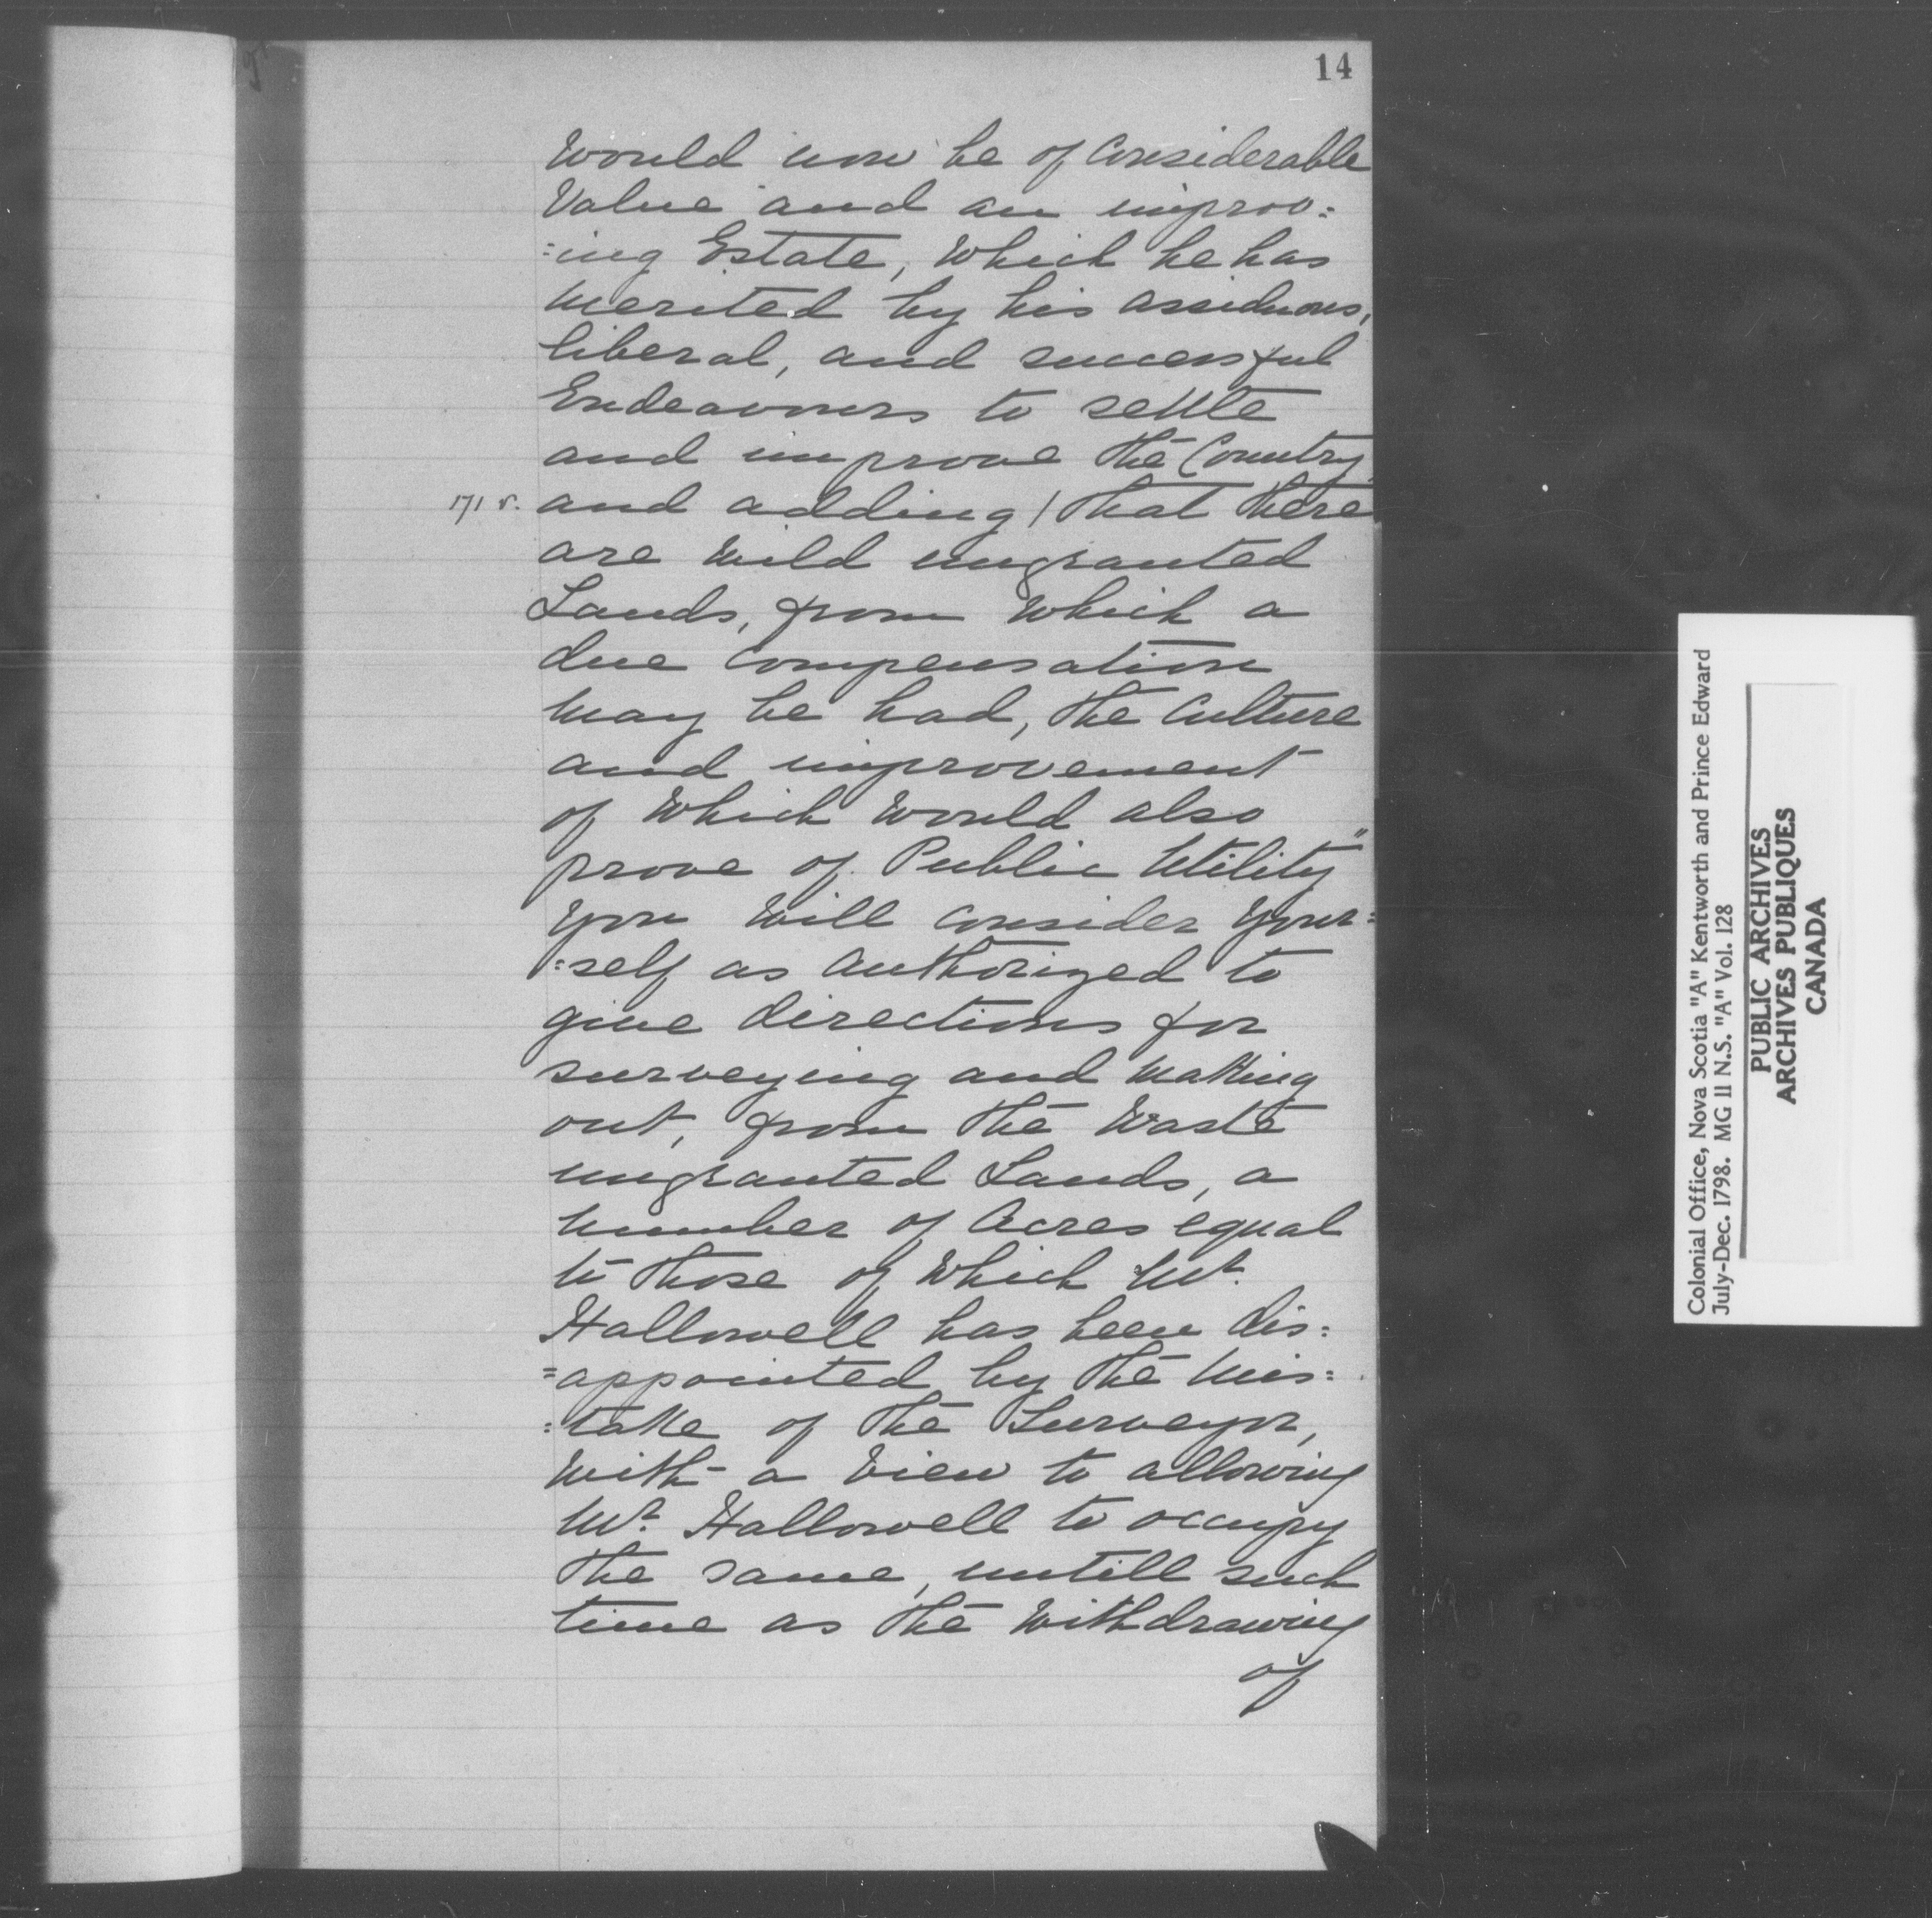 14
Would now be of Considerable
Value and an improv:
:ing Estate, Which he has
Merited by his assiduous,
liberal, and successful
Endeavours to settle
and improve the Country
171 v. and adding / that there
are Wild ungranted
Lands, from Which a
due Compensation
May be had, the Culture
and improvement
of Which Would also
prove of Public Utility"
You Will Consider Your=
=self as Authorized to
give directions for
surveying and Making
out, from the Waste
ungranted Lands, a
Number of Acres equal
to those of Which Mr.
Hallowell has been dis:
=appointed by the Mis:
:take of the Surveyor,
With a View to allowing
Mr. Hallowell to occupy
the same, untill such
time as the Withdrawing
of
Colonial Office, Nova Scotia "A" Kentworth and Prince Edward
July-Dec. 1798. MG 11 N.S. "A" Vol. 128
PUBLIC ARCHIVES
ARCHIVES PUBLIQUES
CANADA